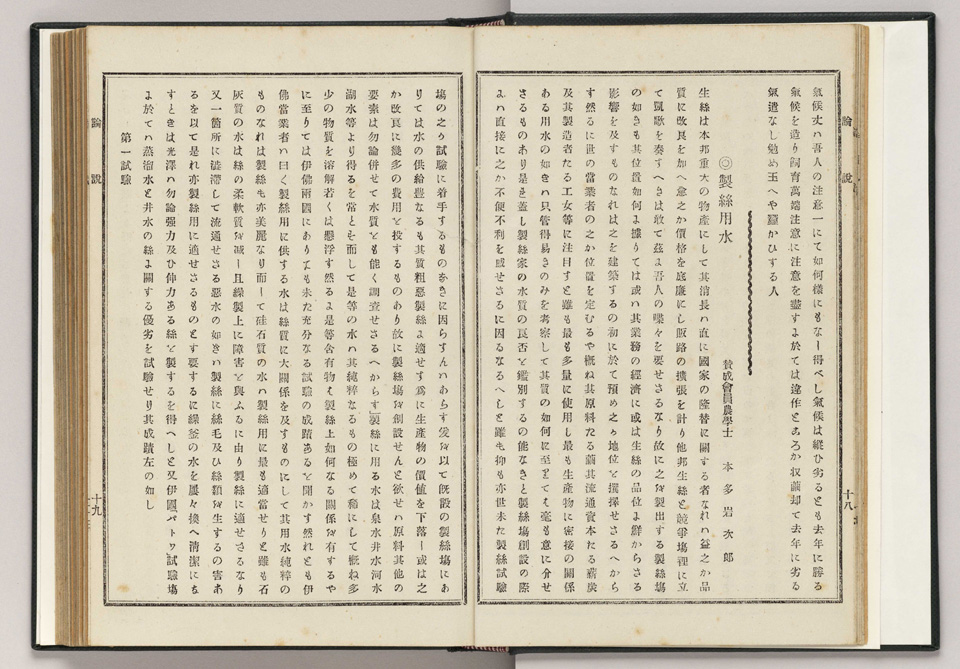 論說
十八
氣候丈ハ吾人の注意一にて如何樣にもなし得べし氣候は縱ひ劣るとも去年に勝る
氣候を造り飼育萬端注意に注意を盡すよ於ては違作どころか収繭却て去年に劣る
氣遣なし勉め玉へや蠶かひする人
◎製絲用水
賛成會員農學士 本多岩次郎
生絲は本邦重大の物產にして其消長ハ直に國家の隆替に關する者なれハ益之か品
質に改良を加へ愈之か價格を底廉にし販路の擴張を計り他邦生絲と競爭塲裡に立
て凱歌を奏すへきは敢て茲よ吾人の喋々を要せさるなり故に之を製出する製絲塲
の如きも其位置如何よ據りては或ハ其業務の經濟に或は生絲の品位よ鮮からさる
影響を及すものなれは之を建築するの初に於て預め之ゟ地位を撰擇せさるへから
す然るに世の當業者の之か位置を定むるや概ね其原料たる繭其流通資本たる薪炭
及其製造者たる工女等に注目すと雖も最も多量に使用し最も生產物に密接の關係
ある用水の如きハ只管得易きのみを考察して其質の如何に至りてハ毫も意に介せ
さるものあり是を蓋し製絲家の水質の良否を鑑別するの能なきと製絲塲創設の際
よハ直接に之か不便不利を感せさるに因るなるへしと雖も抑も亦世未た製絲試驗
論說
十九
塲の之ゟ試驗に着手するものなきに因らすんハあらす爰を以て旣設の製絲塲にあ
りては水の供給豊なるも其質粗惡製絲よ適せす爲に生產物の價値を下落し或は之
か改良に幾多の費用を投するものあり故に製絲塲を創設せんと欲せハ原料其他の
要素は勿論併せて水質をも能く調査せさるへからす」製絲に用る水は泉水井水河水
湖水等より得るを常とそ而して是等の水ハ其純粹なるもの極めて稀にして概ね多
少の物質を溶解若くは懸浮す然るよ是等含有物く製絲上如何なる關係を有するや
に至りては伊佛兩國にありても未た充分なる試驗の成蹟あるを聞かす然れとも伊
佛當業者ハ曰く製絲用に供する水は絲質に大關係を及すものにして其用水純粹の
ものなれは製絲も亦美麗なり而して硅石質の水ハ製絲用に最も適當せりと雖も石
灰質の水は絲の柔軟質を减し且繰製上に障害を與ふるに由り製絲に適せさるなり
又一箇所に澁滯して流通せさる惡水の如きハ製絲に絲毛及ひ絲類を生するの害あ
るを以て是れ亦製絲用に適せさるものとす要するに繰釜の水を屢々換へ清潔にな
すときは光澤ハ勿論强力及ひ伸力ある絲を製するを得へしと又伊國「パトワ」試驗塲
よ於てハ蒸溜水と井水の絲よ關する優劣を試驗せり其成蹟左の如し
第一試驗